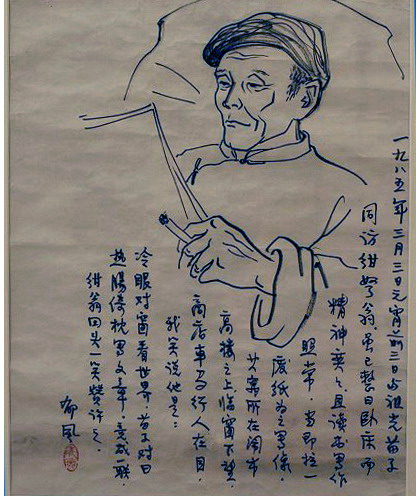 一九八五年三月三日元宵前三日与祖光苗子
同访绀弩翁虽已整日卧床而
精神奕奕且读书写作
照常。当即拉一
废纸为之写像。
其寓所在闹市
高楼之上临窗下望,
商店车马行人在目。
我笑说他是:
冷眼对窗看世界,苗子对曰
热肠倚枕写文章。竟成一联。
绀翁回头一笑赞许之。
郁风